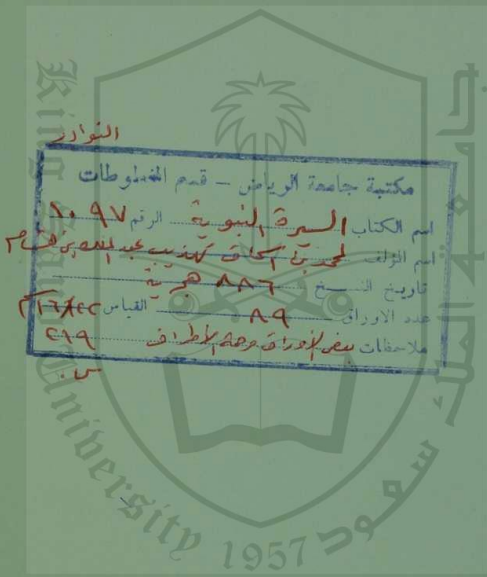 النوادر
مكتبة جامعة الرياض - قسم المخطوطات
اسم الكتاب السيرة النبوية الرقم ١٠٩٧
اسم المؤلف لمحمد بن اسحاق تهذيب عبد الملك بن هشام
تاريخ النسخ ٨٨٦ هجرية
عدد الاوراق ٨٩ القياس
ملاحظات بعض الأوراق الأطراف ٢١٩
King University 1957
جامعة الملك سعود